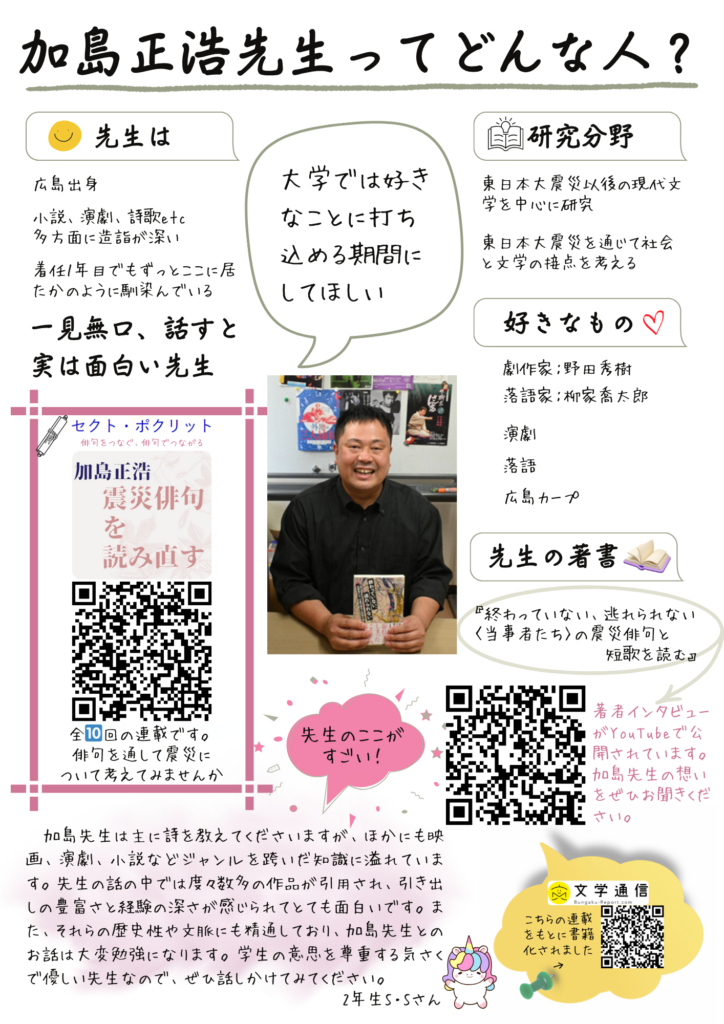 加島正浩先生ってどんな人?
先生は
広島出身
小説、演劇、詩歌etc
多方面に造詣が深い
着任1年目でもずっとここに居
たかのように馴染んでいる
一見無口、話すと
実は面白い先生
大学では好き
なことに打ち
込める期間に
してほしい
研究分野
東日本大震災以後の現代文
学を中心に研究
東日本大震災を通じて社会
と文学の接点を考える
好きなもの
劇作家;野田秀樹
落語家;柳家喬太郎
演劇
落語
広島カープ
セクト・ポクリット
俳句をつなぐ、俳句でつながる
加島正浩
震災俳句
を
読み直す
全10回の連載です。
俳句を通して震災に
ついて考えてみませんか
先生の著書
『終わっていない、逃れられない
〈当事者たち〉の震災俳句と
短歌を読む』
著者インタビュー
がYouTubeで公
開されています。
加島先生の想い
をぜひお聞きくだ
さい。
先生のここが
すごい!
加島先生は主に詩を教えてくださいますが、ほかにも映
画、演劇、小説などジャンルを跨いだ知識に溢れていま
す。先生の話の中では度々数多の作品が引用され、引き出
しの豊富さと経験の深さが感じられてとても面白いです。ま
た、それらの歴史性や文脈にも精通しており、加島先生との
お話は大変勉強になります。学生の意思を尊重する気さく
で優しい先生なので、ぜひ話しかけてみてください。
2年生S・Sさん
文学通信
Bungaku-Report.com
こちらの連載
をもとに書籍
化されました
→